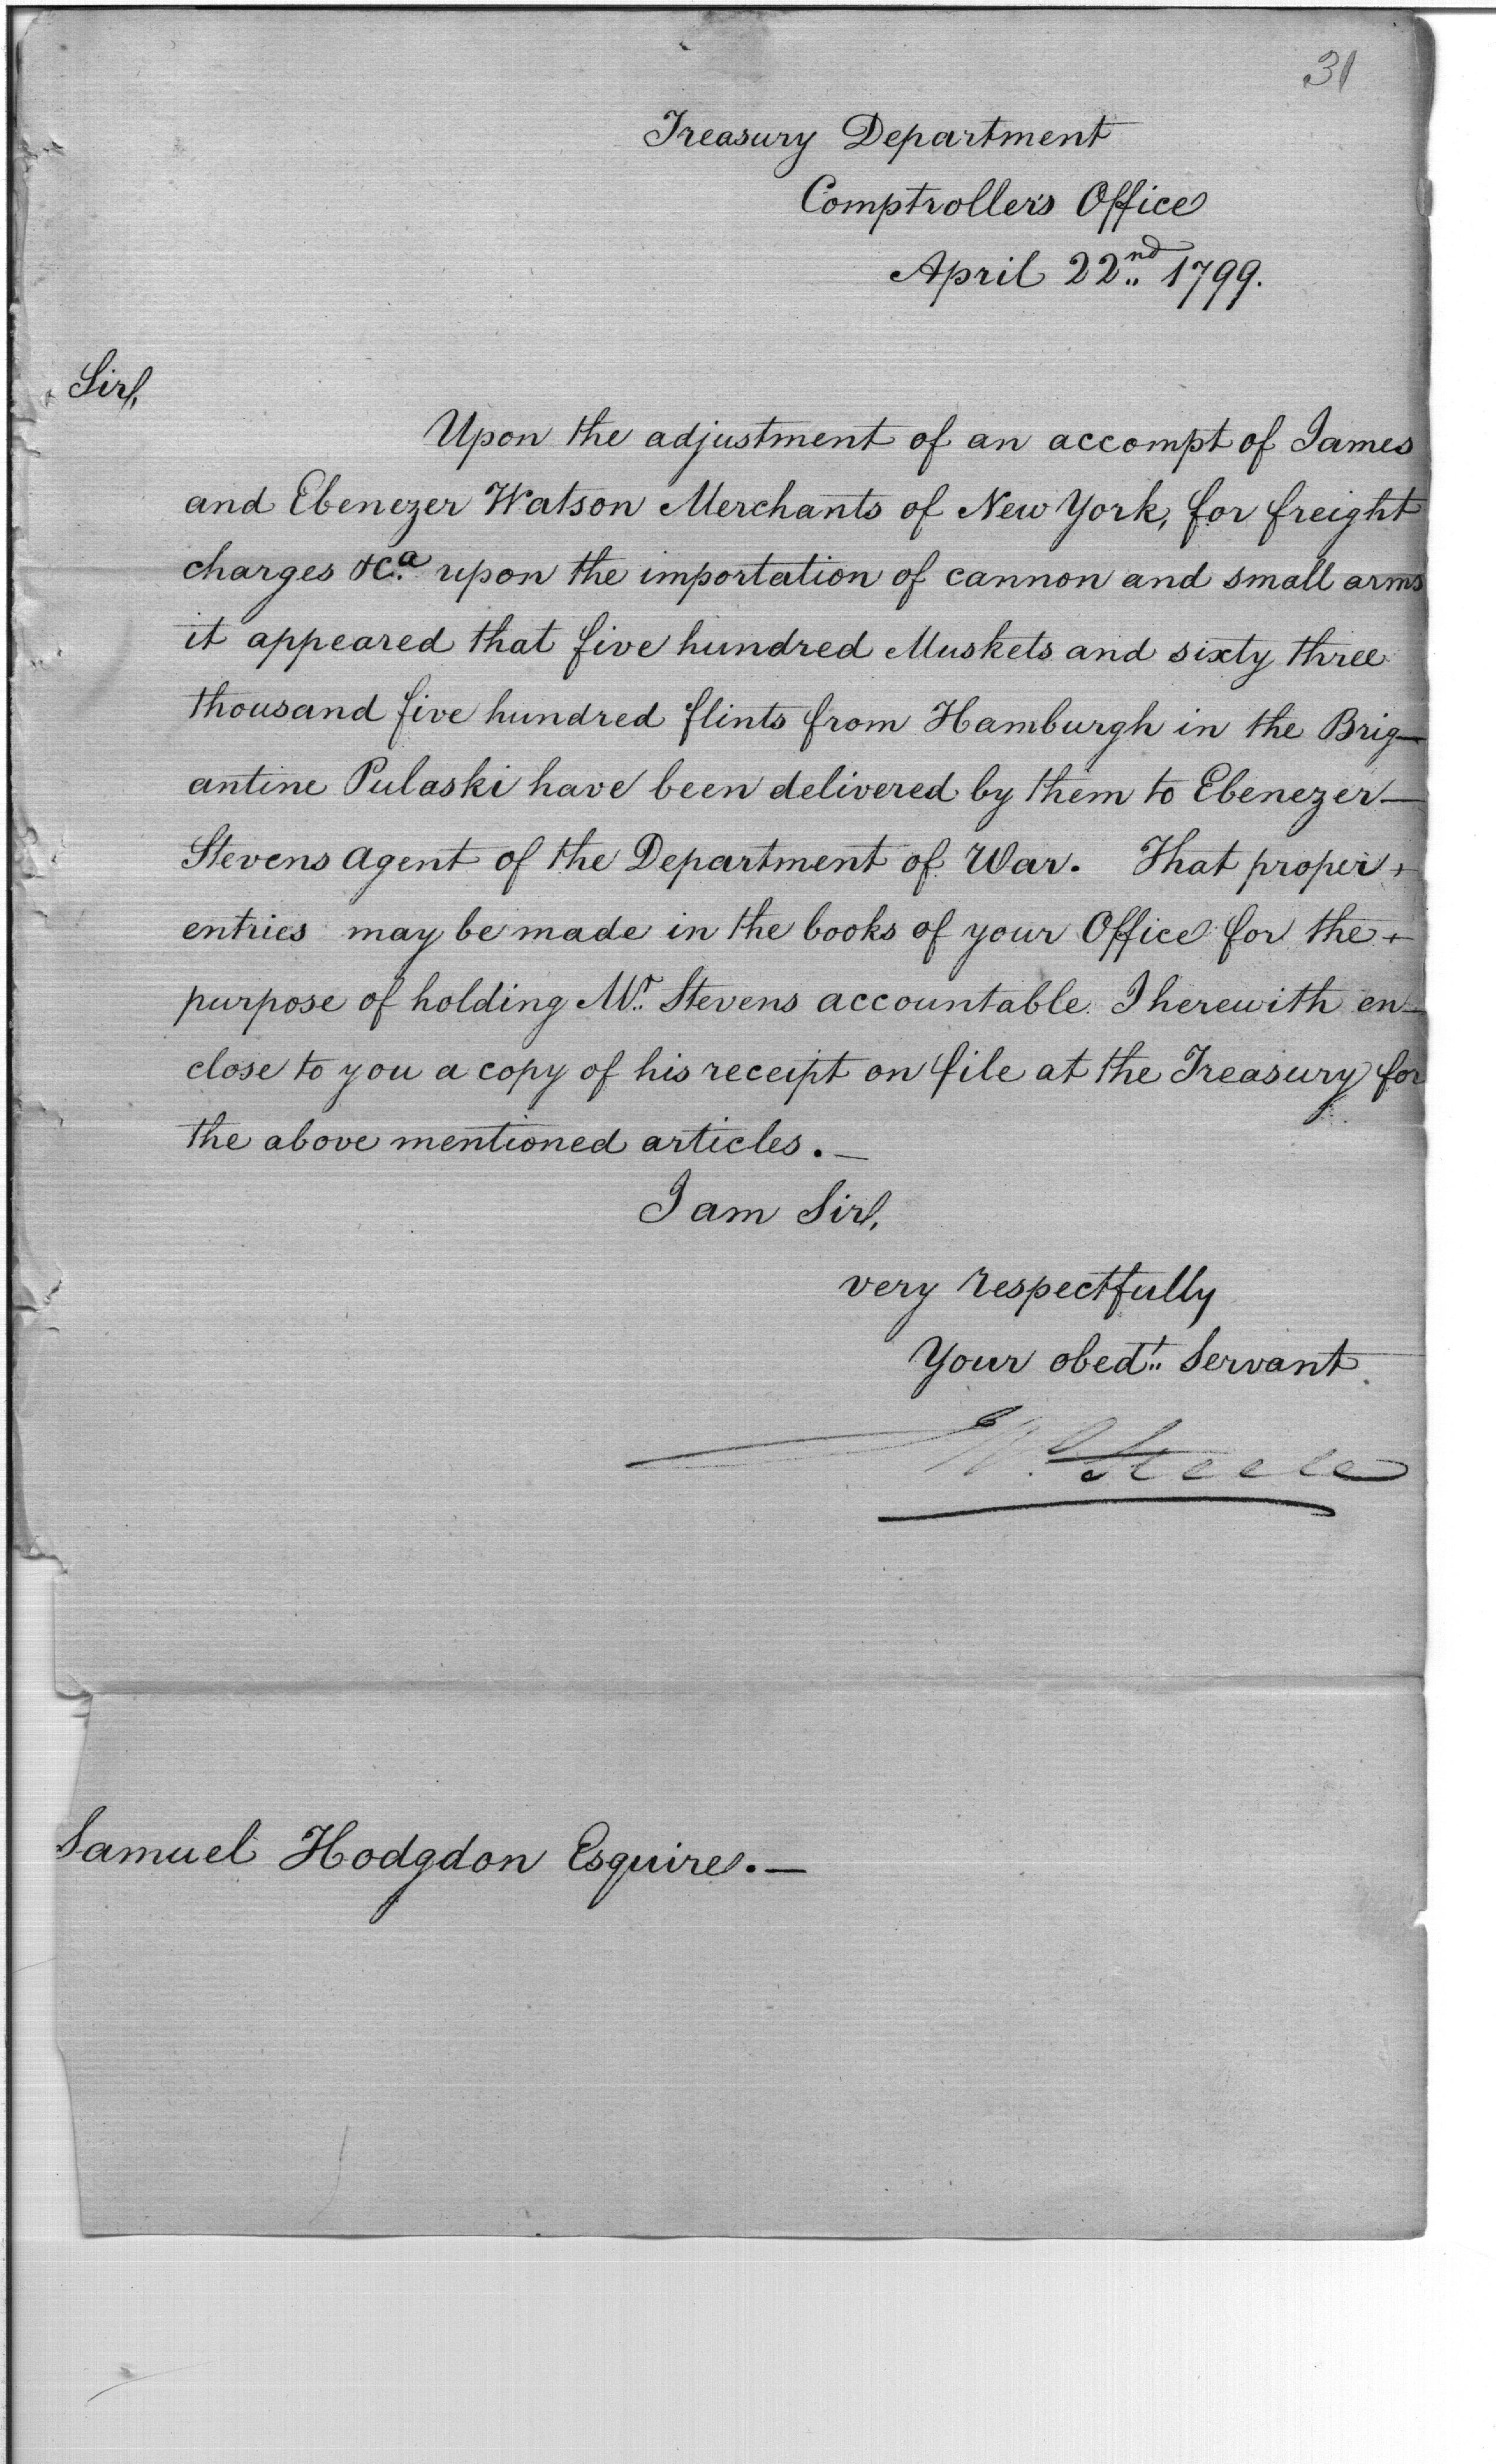 31
Treasury Department
Comptrollers Office
April 22nd 1799.
Sir,
Upon the adjustment of an accompt of James
and Ebenezer Watson Merchants of New York, for freight
charges &c.a upon the importation of cannon and small arms
it appeared that five hundred Muskets and sixty three
thousand five hundred flints from Hamburgh in the Brig—
antine Pulaski have been delivered by them to Ebenezer—
Stevens Agent of the Department of War. That proper
entries may be made in the books of your Office for the
purpose of holding Mr. Stevens accountable. I herewith en—
close to you a copy of his receipt on file at the Treasury for
the above mentioned articles.—
I am Sir,
very respectfully
Your obedt. Servant
Steele
Samuel Hodgdon Esquire.—